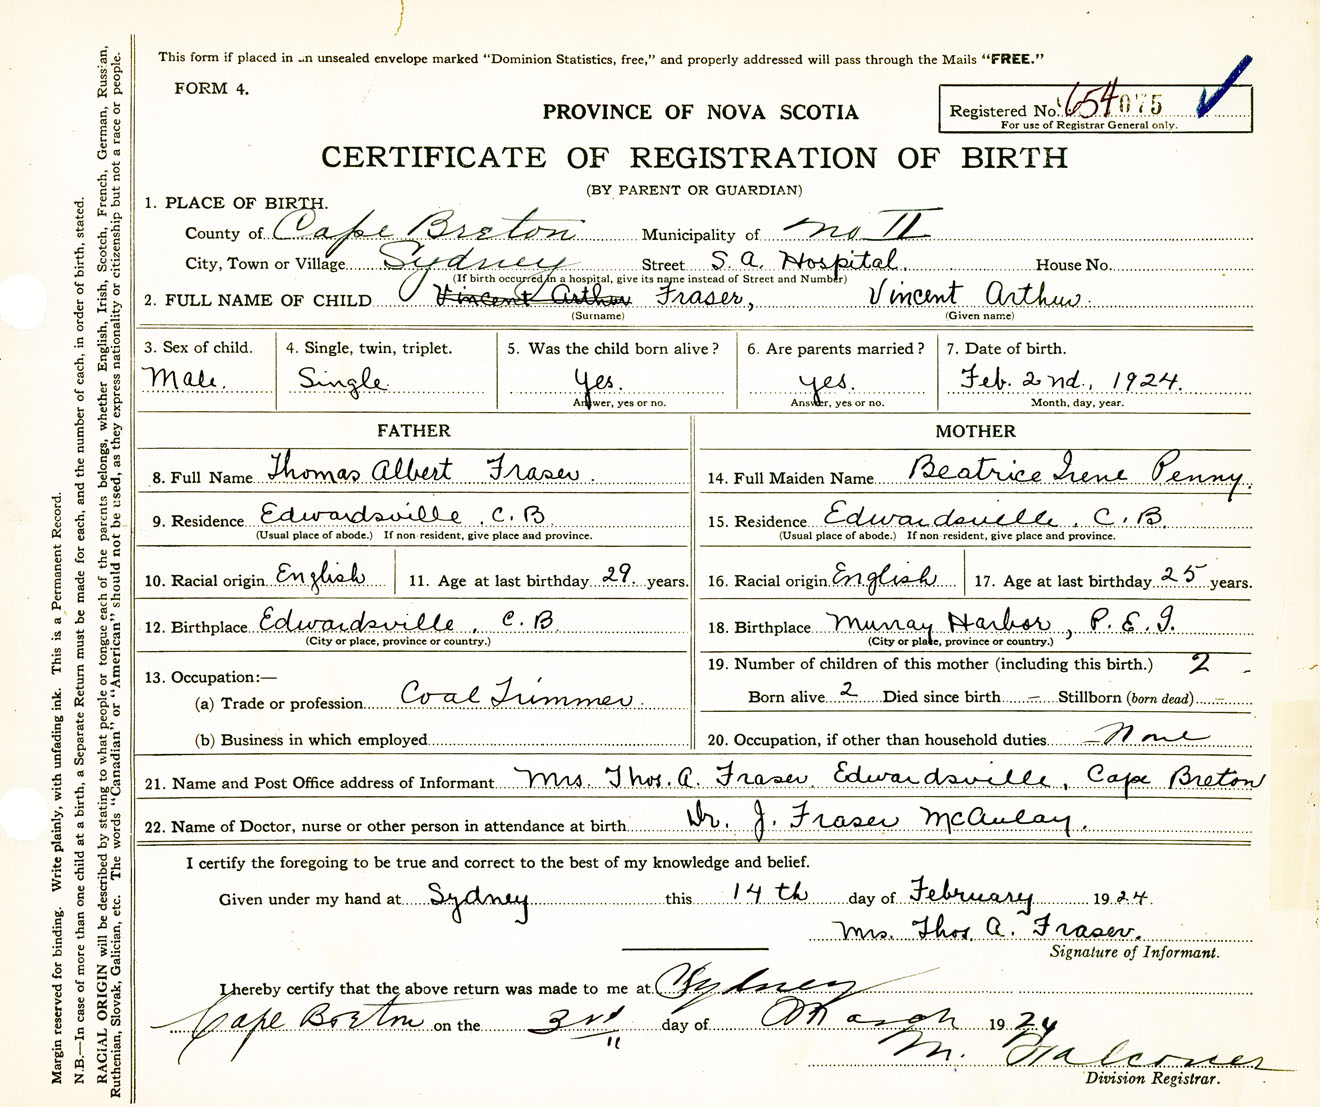 This form if placed in an unsealed envelope marked "Dominion Statistics, free," and properly addressed will pass through the Mails "FREE."
FORM 4.
PROVINCE OF NOVA SCOTIA
Registered No. 654075
For use of Registrar General only.
CERTIFICATE OF REGISTRATION OF BIRTH
(BY PARENT OR GUARDIAN)
1. PLACE OF BIRTH.
County of Cape Breton Municipality of No II
City, Town or Village Sydney Street S. A. Hospital. House No.
(If birth occurred in a hospital, give its name instead of Street and Number)
2. FULL NAME OF CHILD Vincent Arthur Fraser, Vincent Arthur.
(Surname) (Given name)
3. Sex of child. 4. Single, twin, triplet. 5. Was the child born alive? 6. Are parents married? 7. Date of birth.
Male. Single. Yes. yes. Feb. 2nd., 1924.
Answer, yes or no. Answer, yes or no. Month, day, year.
FATHER MOTHER
8. Full Name Thomas Albert Fraser. 14. Full Maiden Name Beatrice Irene Penny.
9. Residence Edwardsville, C. B. 15. Residence Edwardsville, C. B.
(Usual place of abode.) If non-resident, give place and province. (Usual place of abode.) If non-resident, give place and province.
10. Racial origin English 11. Age at last birthday 29. years. 16. Racial origin English 17. Age at last birthday 25 years.
12. Birthplace Edwardsville, C. B. 18. Birthplace Murray Harbor, P. E. I.
(City or place, province or country.) (City or place, province or country.)
13. Occupation:— 19. Number of children of this mother (including this birth.) 2
(a) Trade or profession Coal Trimmer. Born alive 2 Died since birth – Stillborn (born dead) –
(b) Business in which employed 20. Occupation, if other than household duties – None
21. Name and Post Office address of Informant Mrs. Thos. A. Fraser Edwardsville, Cape Breton
22. Name of Doctor, nurse or other person in attendance at birth Dr. J. Fraser McAulay.
I certify the foregoing to be true and correct to the best of my knowledge and belief.
Given under my hand at Sydney this 14th day of February 1924.
Mrs. Thos. A. Fraser.
Signature of Informant.
I hereby certify that the above return was made to me at Sydney
Cape Breton on the 3rd day of March 1924
M. Falconer
Division Registrar.
Margin reserved for binding. Write plainly, with unfading ink. This is a Permanent Record.
N.B.—In case of more than one child at a birth, a Separate Return must be made for each, and the number of each, in order of birth, stated.
RACIAL ORIGIN will be described by stating to what people or tongue each of the parents belongs, whether English, Irish, Scotch, French, German, Russian,
Ruthenian, Slovak, Galician, etc. The words "Canadian" or "American" should not be used, as they express nationality or citizenship but not a race or people.